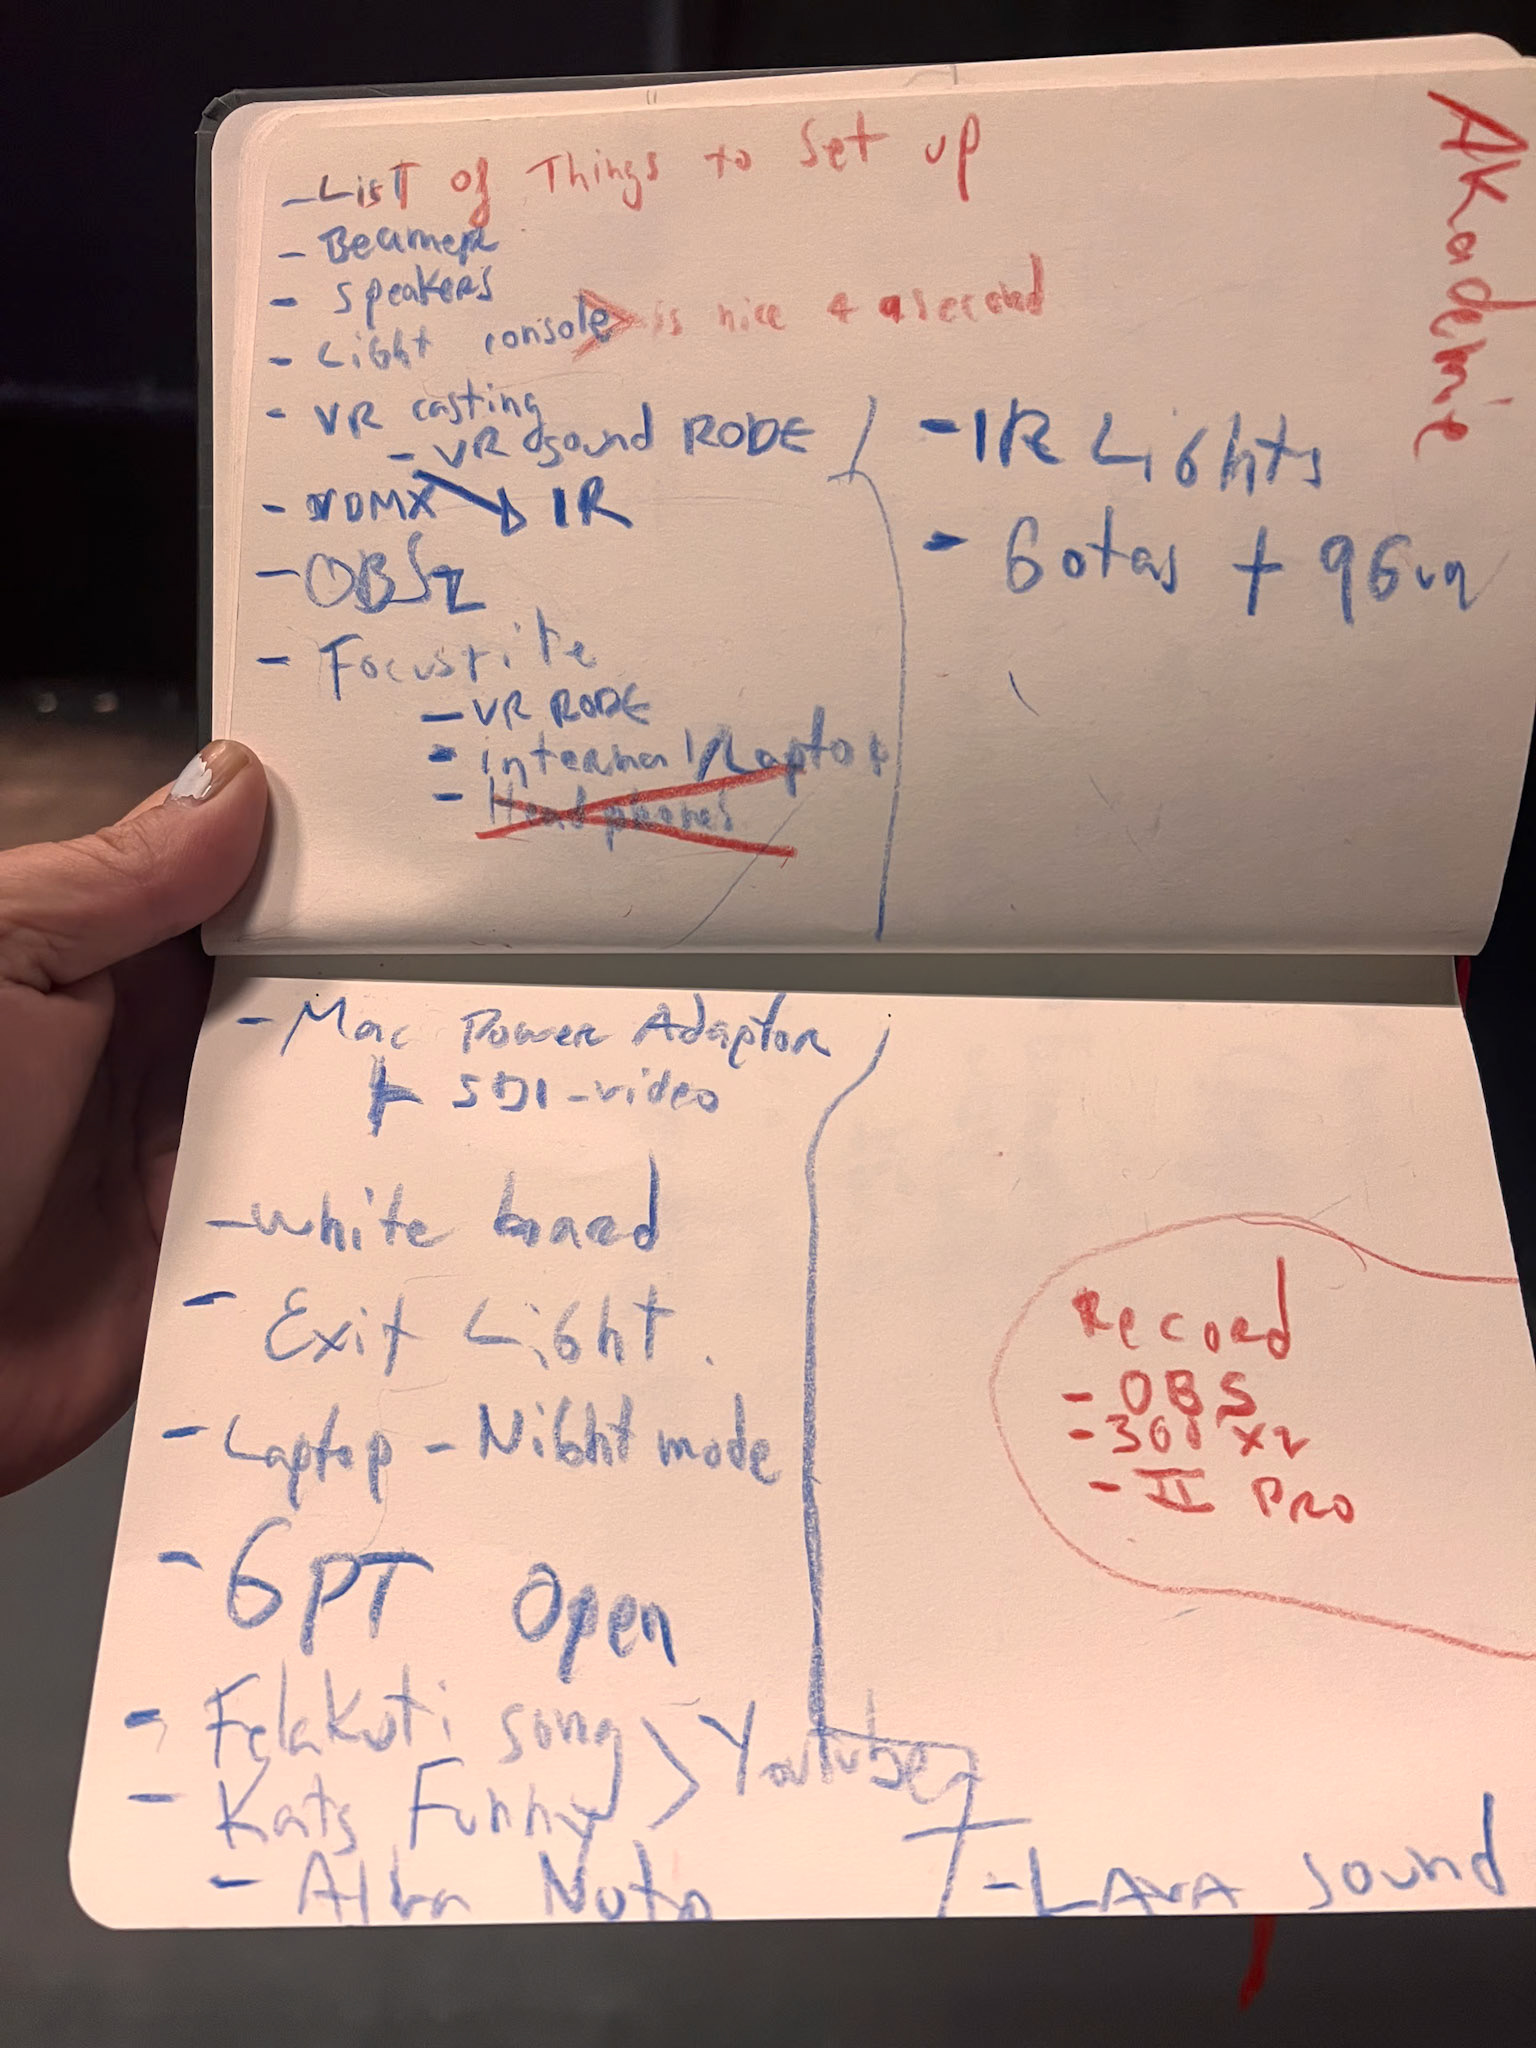 Akademie
- List of Things to Set up
- Beamer
- Speakers
- Light console > is nice + a second
- VR casting
- VR sound RODE
- VDMX → IR
- OBS
- Focustrite
- VR RODE
- internal/Laptop
- Headphones
- IR Lights
- Gotas + agua
- Mac Power Adaptor
+ SDI-video
- white board
- Exit Light.
- Laptop - Night mode
- GPT Open
- Felakuti song
- Kats Funny > Youtube
- Alba Noto
Record
- OBS
- 360 x2
- II PRO
- LAVA sound